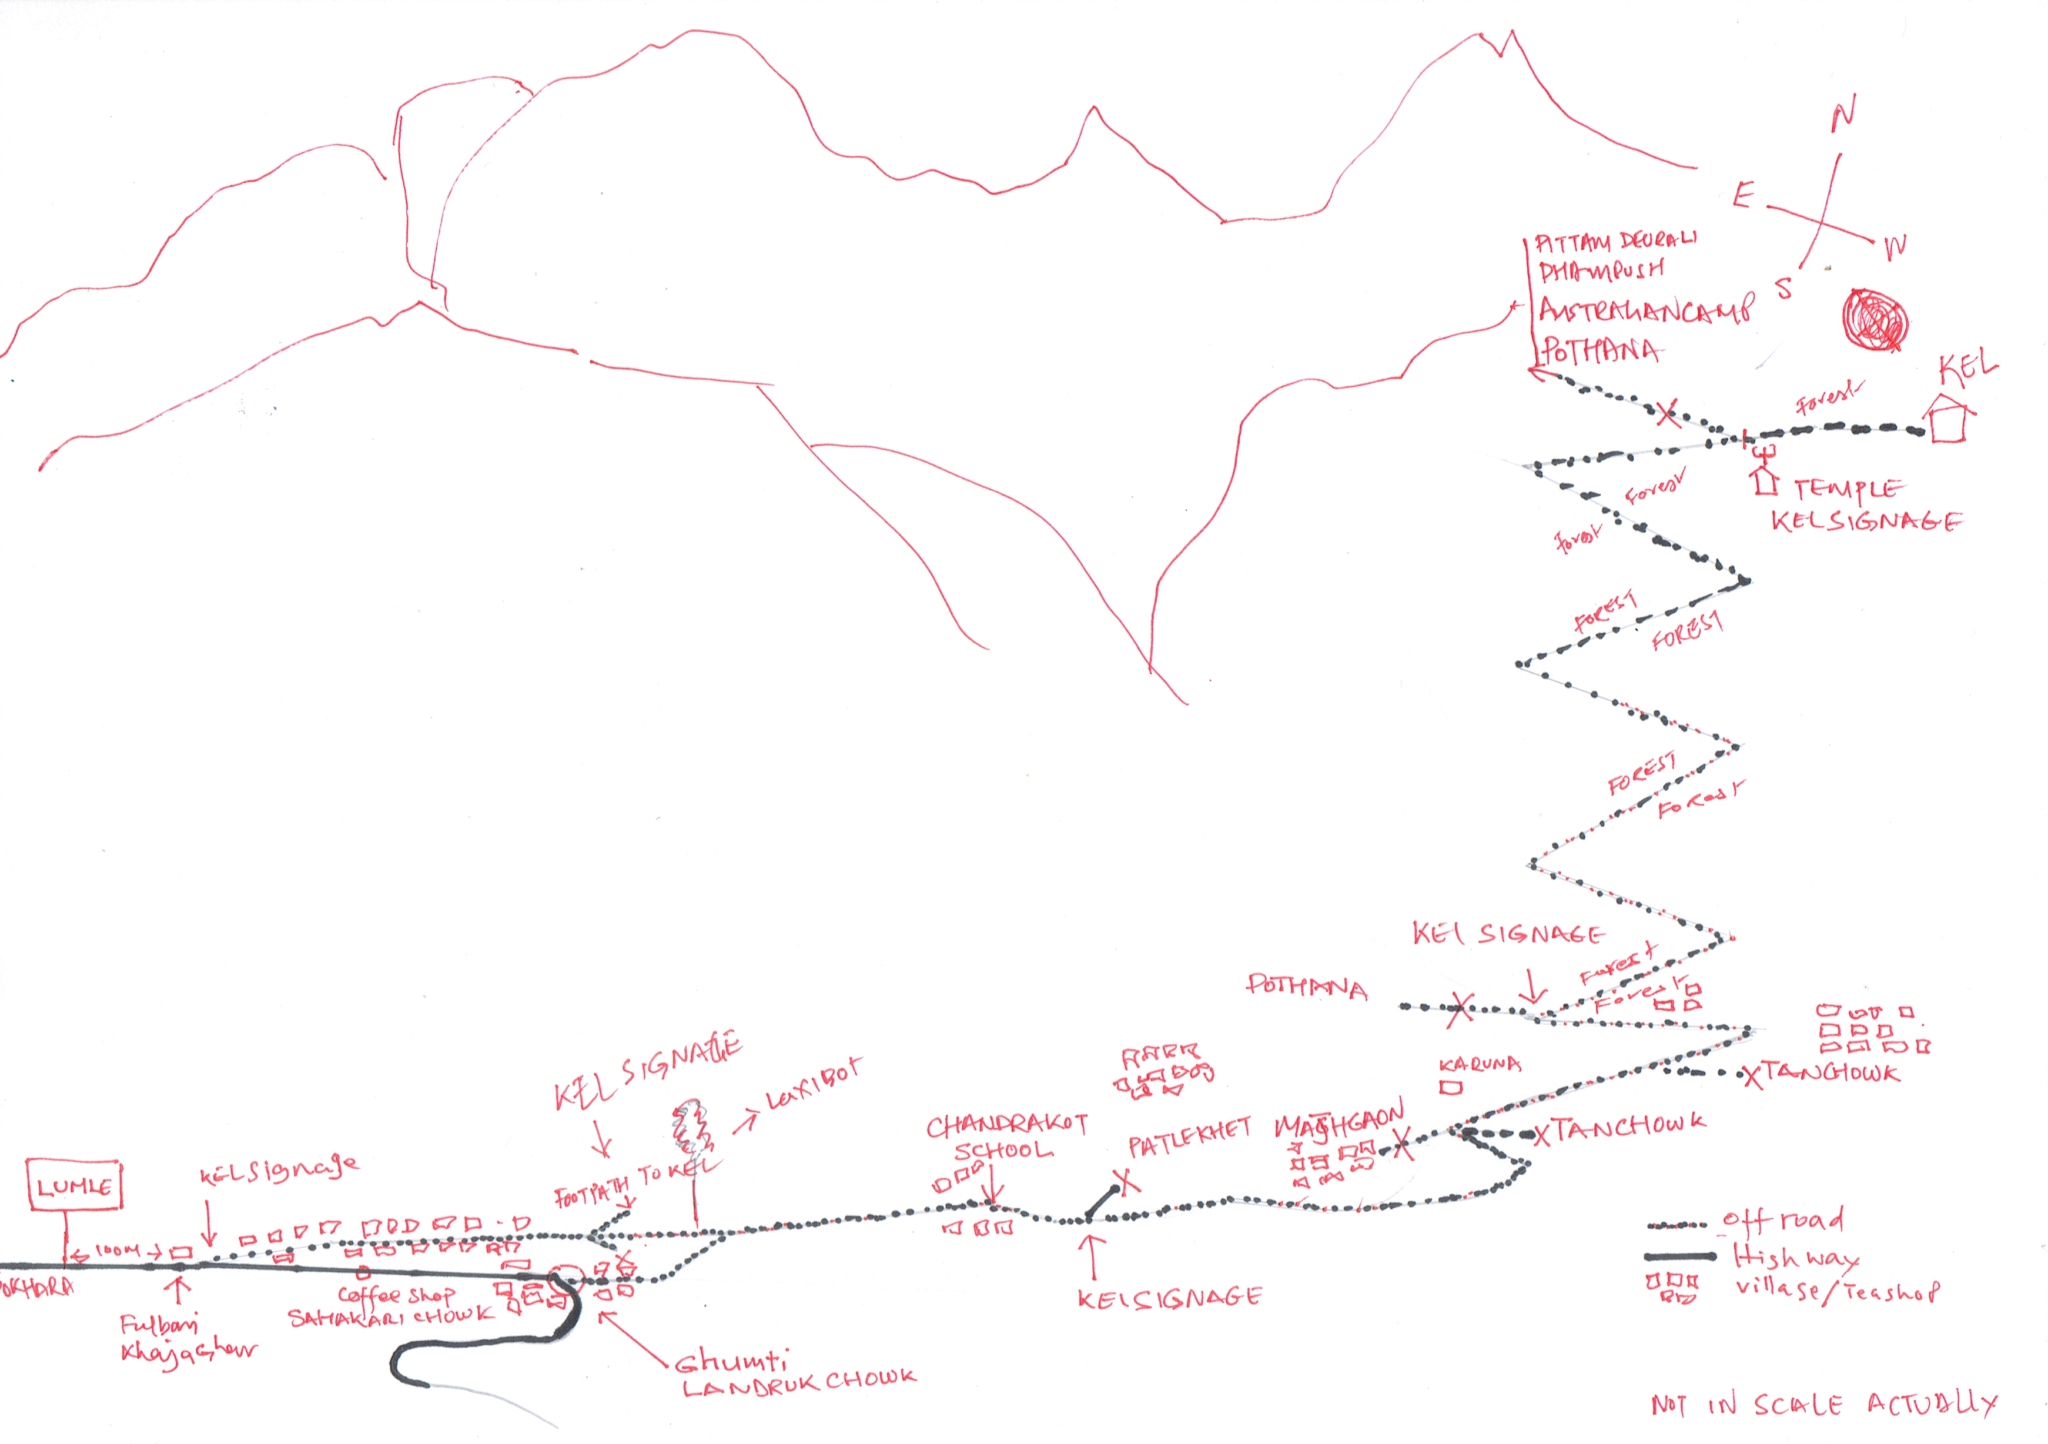 N
E
W
S
PITTAM DEURALI
DHAMPUSH
AUSTRALIANCAMP
POTHANA
KEL
Forest
TEMPLE
KELSIGNAGE
Forest
Forest
FOREST
FOREST
FOREST
Forest
KEL SIGNAGE
Forest
Forest
POTHANA
KARUNA
TANCHOWK
TANCHOWK
MAJHGAON
PATLEKHET
CHANDRAKOT
SCHOOL
KELSIGNAGE
KEL SIGNAGE
LaxIBOT
FOOTPATH TO KEL
KELSignage
LUMLE
100M
OKHARA
Fulbari
Coffee shop
SAHAKARI CHOWK
Ghumti
LANDRUK CHOWK
off road
High way
village/Teashop
NOT IN SCALE ACTUALLY